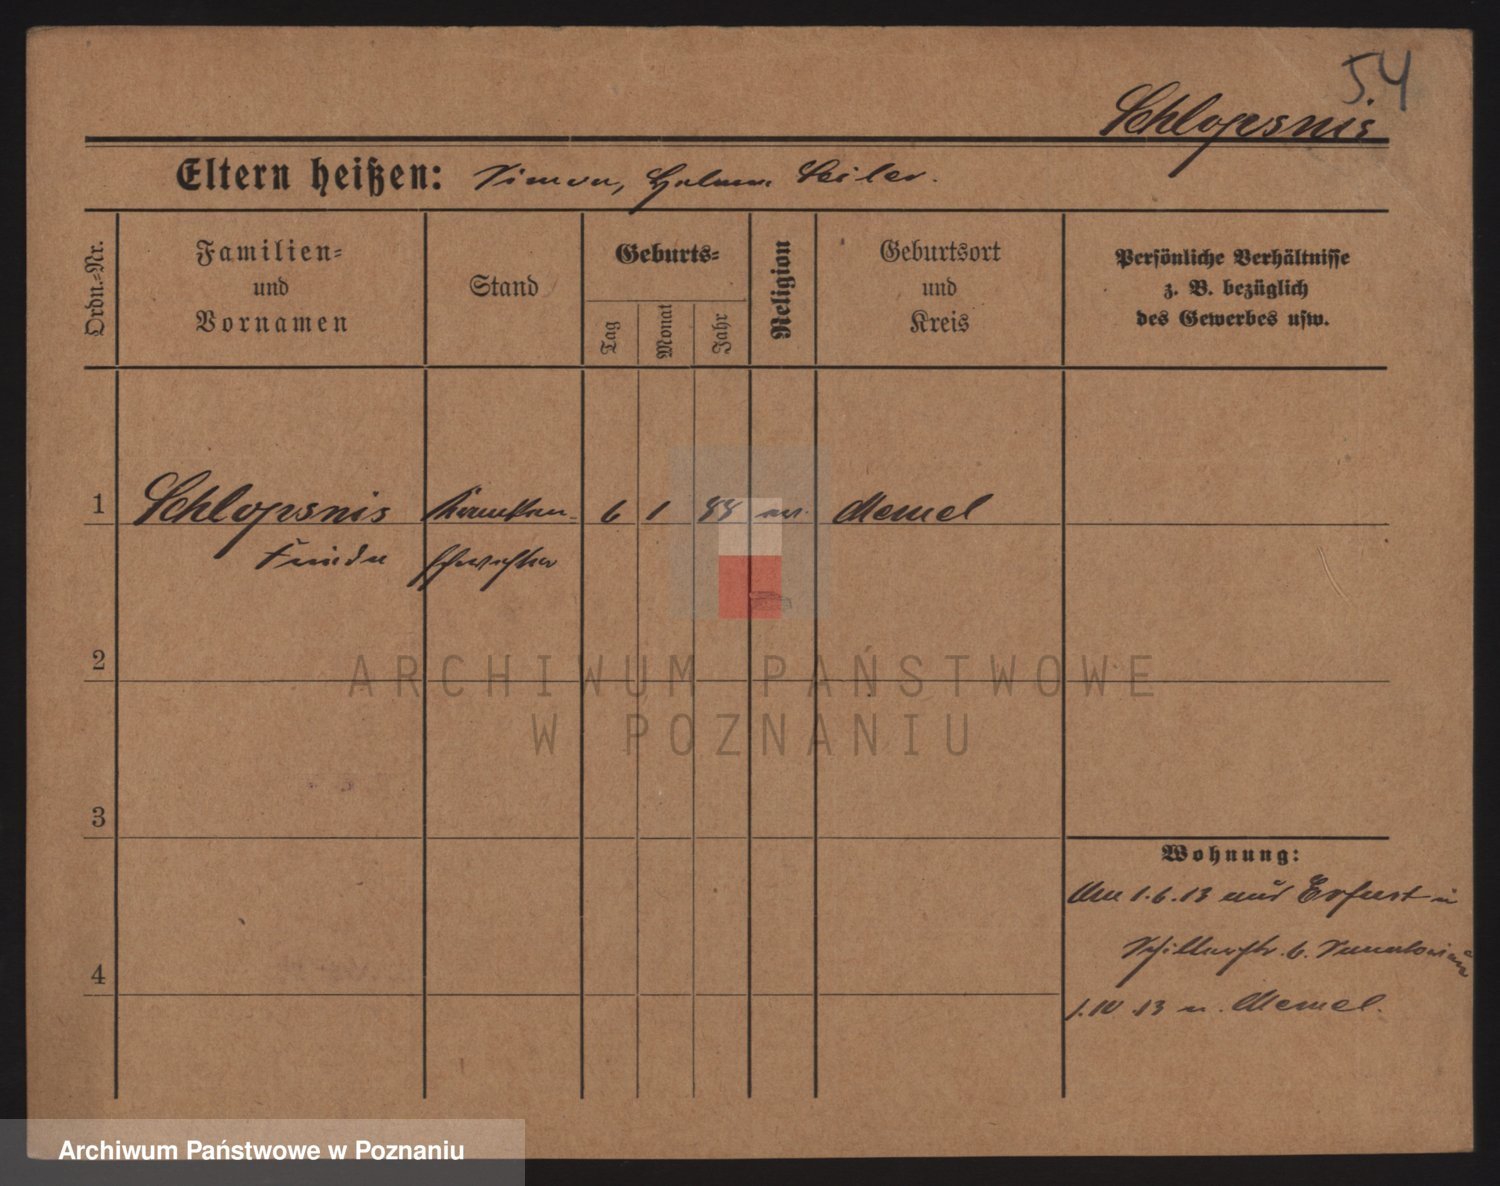 54
Schlopsnis
Eltern heißen: Simon, Seiler.
Ordn.-Nr.
Familien-
und
Vornamen
Stand
Geburts-
Tag
Monat
Jahr
Religion
Geburtsort
und
Kreis
Persönliche Verhältnisse
z. B. bezüglich
des Gewerbes usw.
1 Schlopsnis Kranken- 6 1 88 ev. Memel
Frieda schwester
2
ARCHIWUM PAŃSTWOWE
W POZNANIU
3
Wohnung:
Am 1.6.13 aus Erfurt in
Schillerstr. 6.
4
1.10.13 n. Memel.
Archiwum Państwowe w Poznaniu